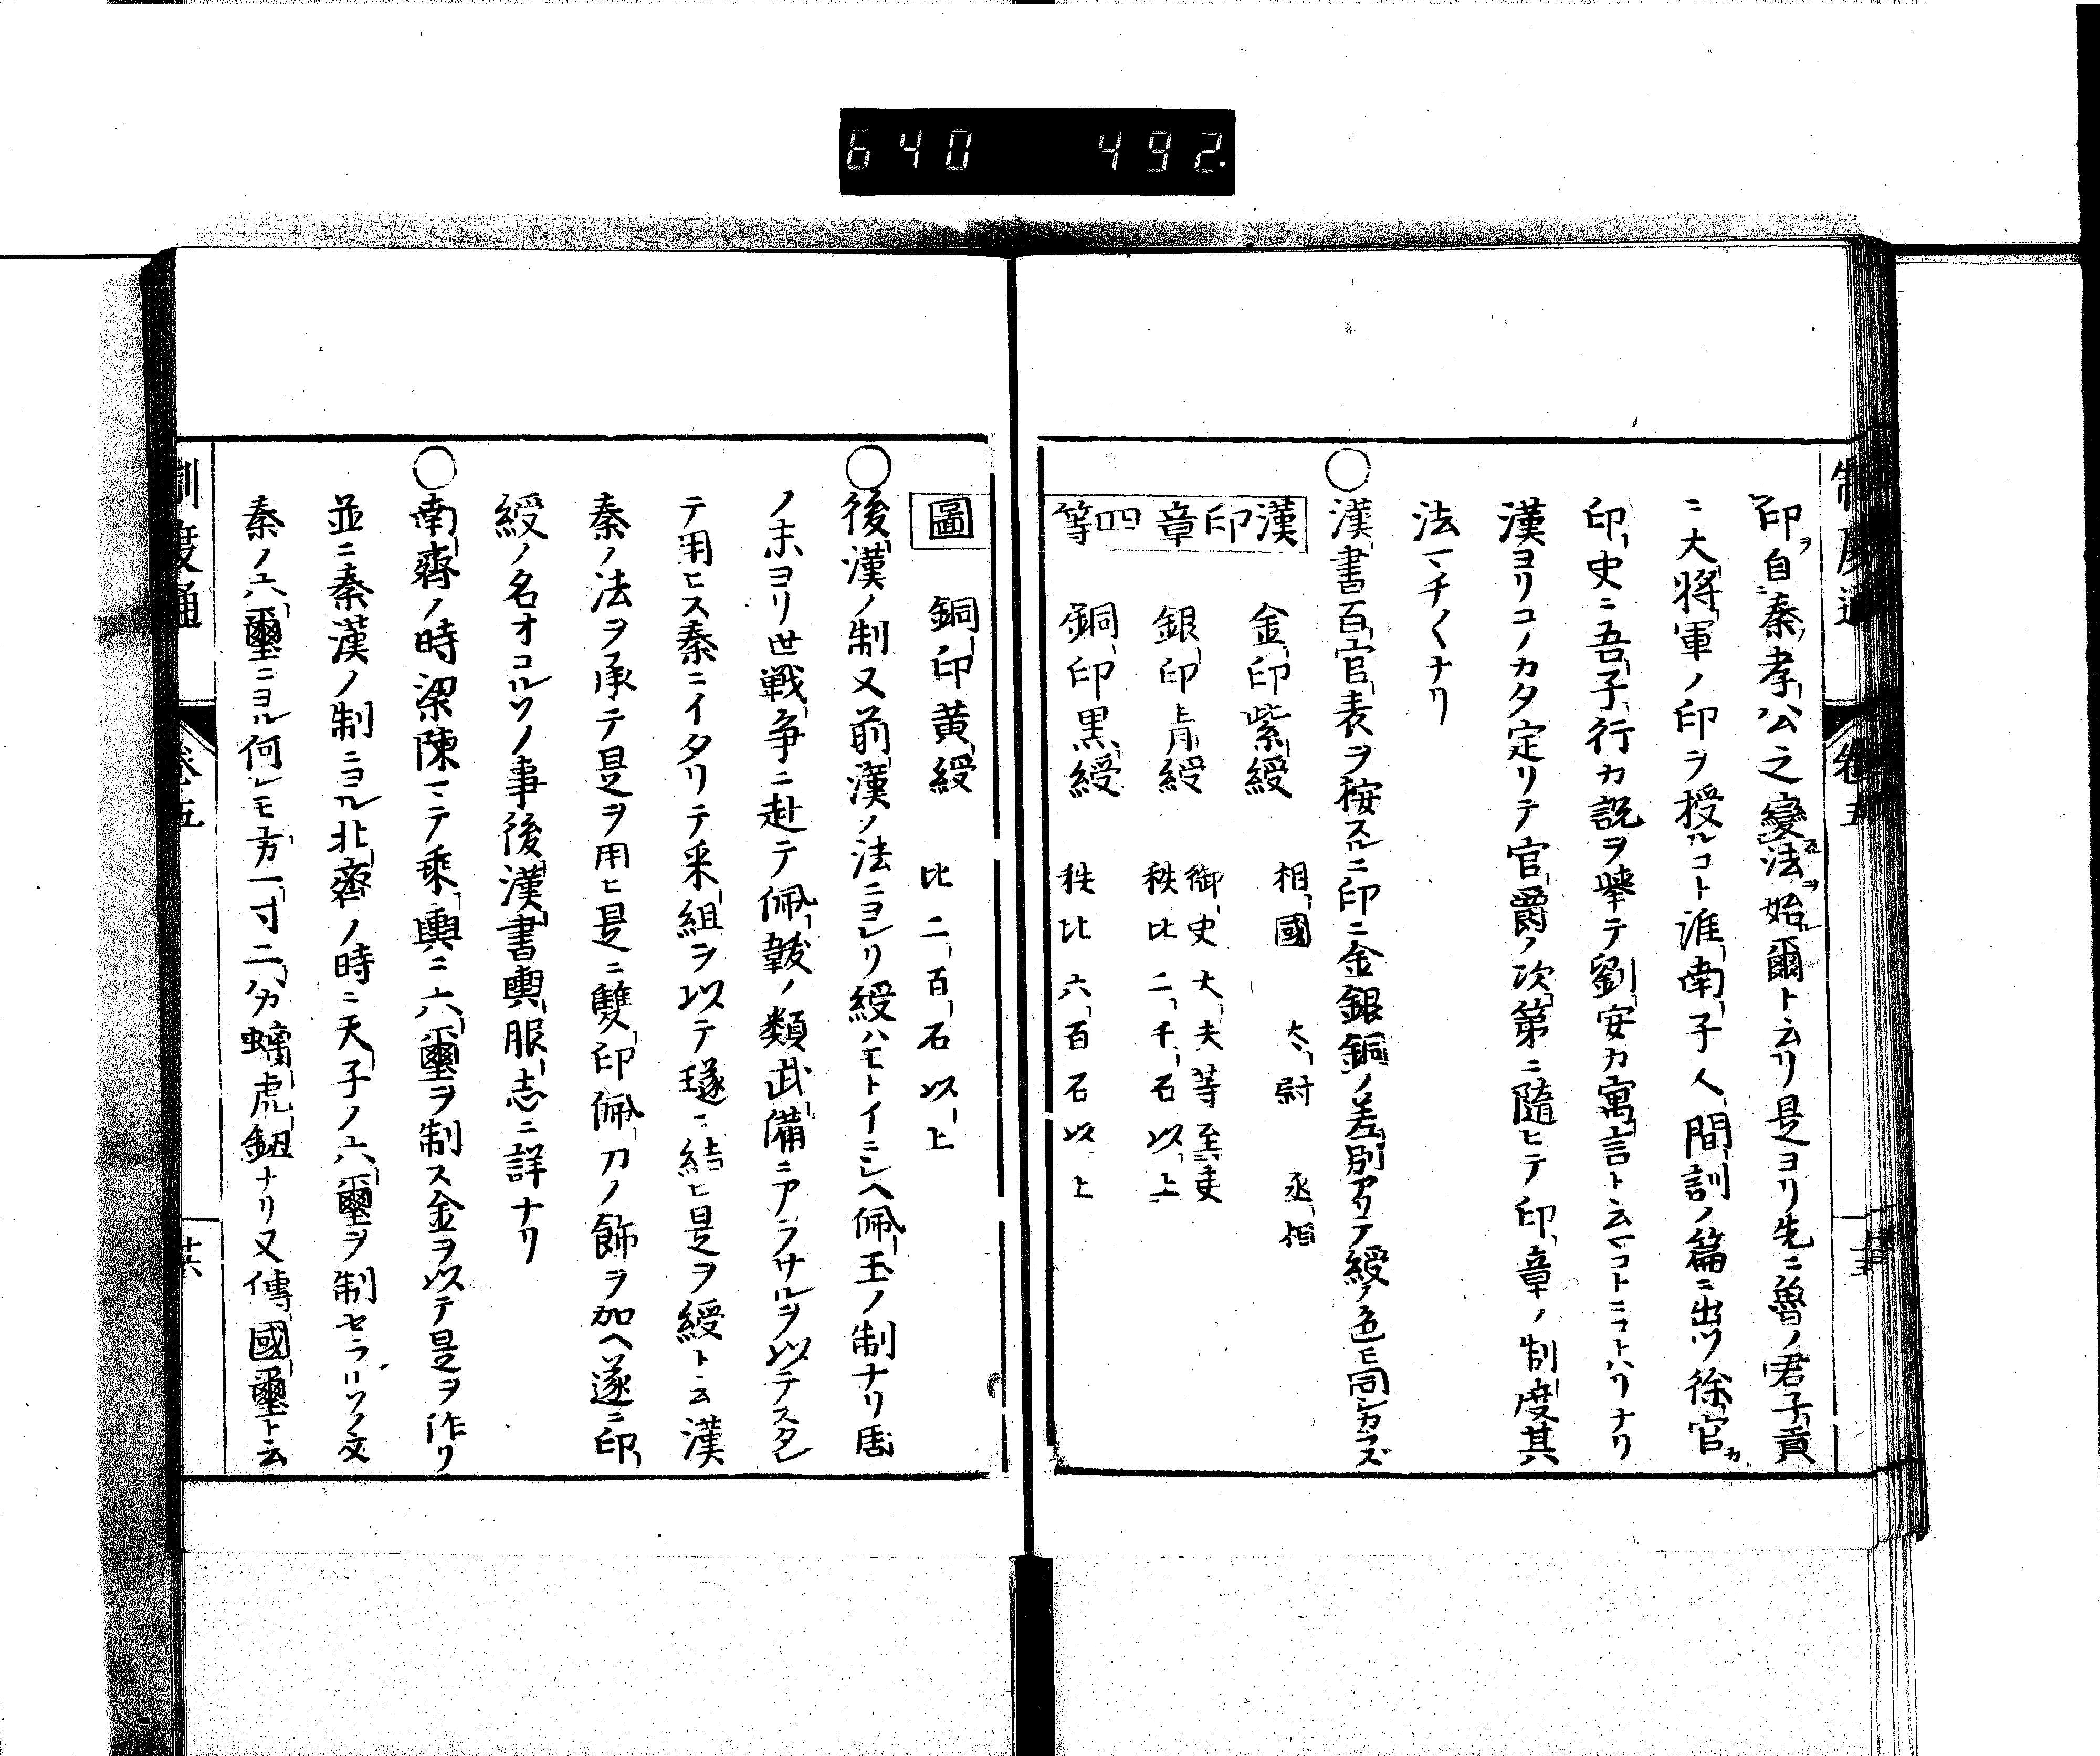 640 492
制度通 卷五
印ヲ自秦孝公之變法ヲ始爾ト云リ是ヨリ先ニ魯ノ君子貢
ニ大將軍ノ印ヲ授ルコト淮南子人間訓ノ篇ニ出ツ徐官カ
印史ニ吾子行カ説ヲ擧テ劉安カ寓言ト云コトニコトハリナリ
漢ヨリコノカタ定リテ官爵ノ次第ニ隨ヒテ印章ノ制度其
法マチ〱ナリ
○漢書百官表ヲ按スルニ印ニ金銀銅ノ差別アリテ綬ノ色モ同シカラズ
漢印章四等
金印紫綬 相國 太尉 丞相
銀印青綬 御史大夫等至吏
秩比二千石以上
銅印黒綬 秩比六百石以上
圖 銅印黄綬 比二百石以上
○後漢ノ制又前漢ノ法ニヨレリ綬ハモトイニシヘ佩玉ノ制ナリ周
ノ末ヨリ世戦争ニ赴テ佩韍ノ類武備ニアラサルヲ以テスタレ
テ用ヒス秦ニイタリテ采組ヲ以テ璲ニ結ヒ是ヲ綬ト云漢
秦ノ法ヲ承テ是ヲ用ヒ是ニ雙印佩刀ノ飾ヲ加ヘ遂ニ印
綬ノ名オコルソノ事後漢書輿服志ニ詳ナリ
○南齊ノ時梁陳マテ乘輿ニ六璽ヲ制ス金ヲ以テ是ヲ作リ
並ニ秦漢ノ制ニヨル北齊ノ時ニ天子ノ六璽ヲ制セラルソノ文
秦ノ六璽ニヨル何レモ方一寸二分螭虎鈕ナリ又傳國璽ト云
制度通 卷五 廿六